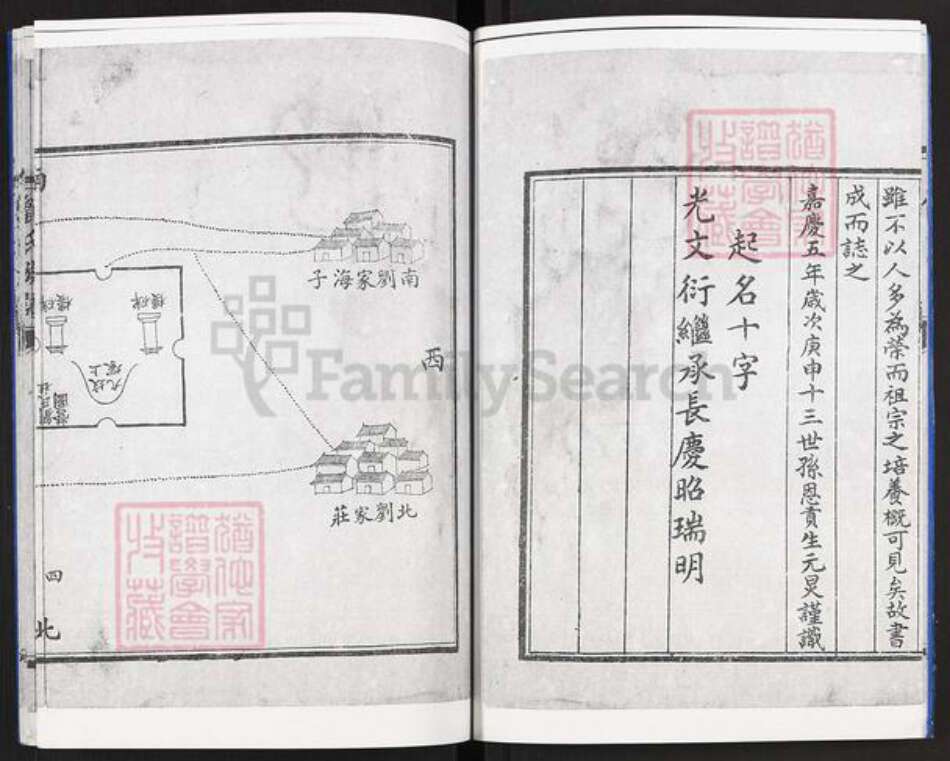 雖不以人多為榮而祖宗之培養概可見矣故書
成而誌之
嘉慶五年歲次庚申十三世孫恩貢生元炅謹識
起名十字
光文衍繼承長慶昭瑞明
南劉家海子
西
碑樓
碑樓
上坟九
北劉家莊
四
北
FamilySearch